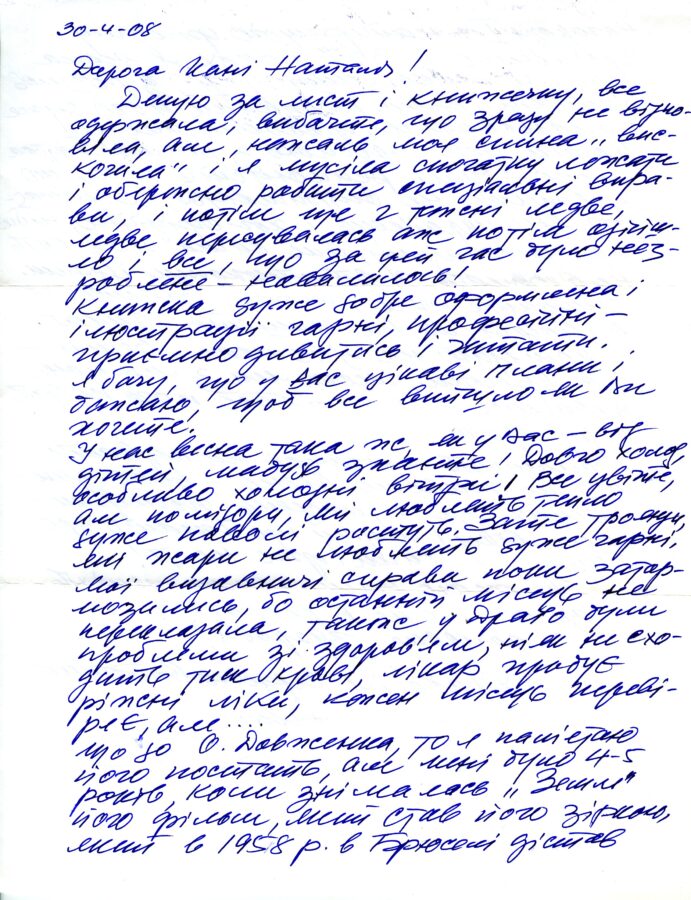 30-4-08
Дорога Пані Наталю!
Дякую за лист і книжечку, все
одержала, вибачте, що зразу не відпо-
віла, але, нажаль моя спина „вис-
кочила" і я мусіла спочатку лежати
і обережно робити спеціальні впра-
ви, і потім ще 2 тижні ледве,
ледве пересувалась аж потім відійш-
ло і все, що за цей час було нез-
роблене – навалилось!
Книжка дуже добре оформлена і
ілюстрації гарні, професійні –
приємно дивитись і читати.
Я бачу, що у Вас цікаві плани і
бажаю, щоб все вийшло як Ви
хочете.
У нас весна така ж, як у Вас – від
дітей мабуть знаєте! Довго холод,
особливо холодні вітри! Все цвіте,
але помідори, які люблять тепло
дуже поволі ростуть. Зате троянди,
які жари не люблять дуже гарні.
Мої видавничі справи поки загаль-
мозились, бо останній місяць не
переказала, також у Драго були
проблеми зі здоров'ям, ніяк не схо-
дить тиск крові, лікар пробує
ріжні ліки, кожен місяць переві-
ряє, але....
Що до О. Довженка, то я памʼятаю
його постать, але мені було 4-5
років, коли знімалась „Земля"
його фільм, який став його зіркою,
який в 1958 р. в Брюселі дістав